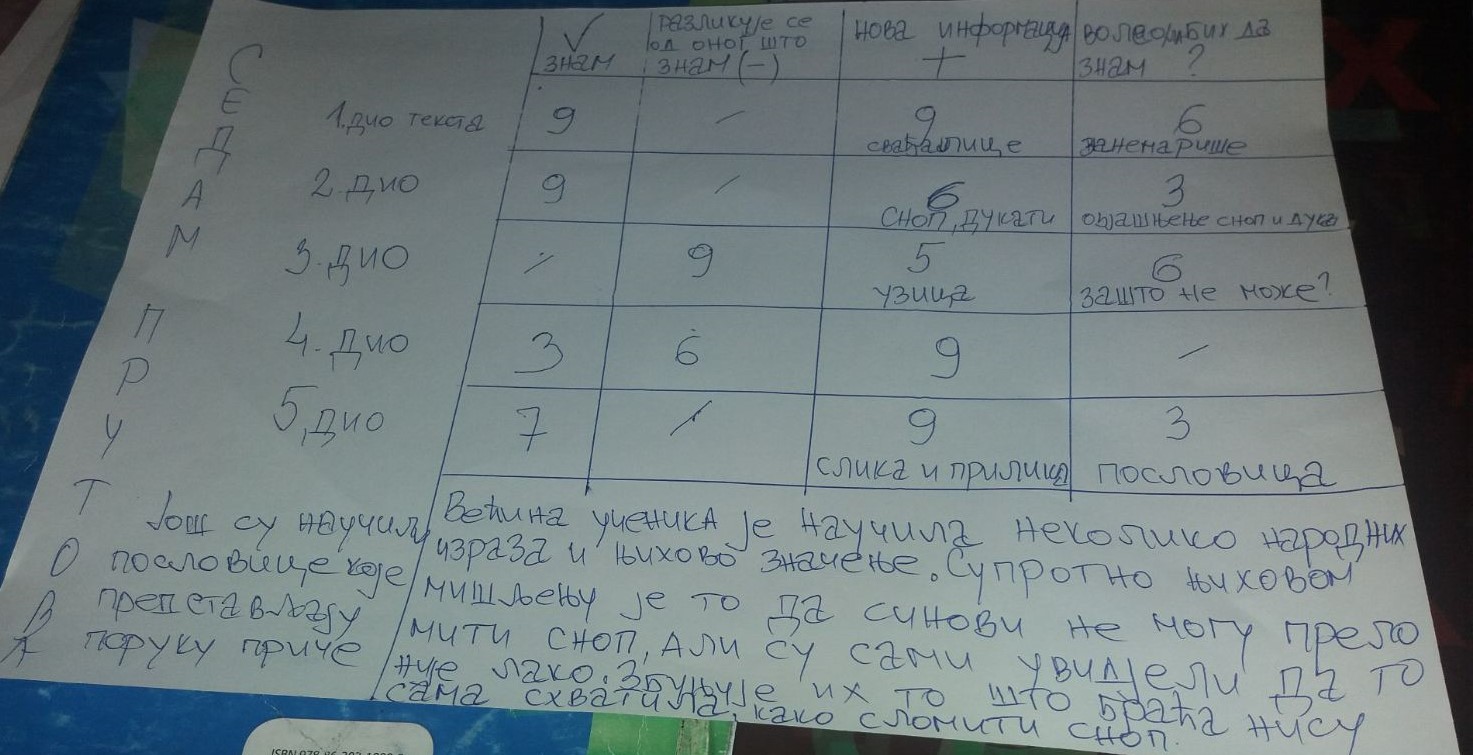 СЕДАМ ПРУТОВА
✓ знам
Разликује се од оног што знам (−)
нова информација +
волео/ла бих да знам ?
1. дио текста 9 / 9 свађалице 6 занемарише
2. дио 9 / 6 сноп, дукати 3 објашњење сноп и дука
3. дио / 9 5 узица 6 зашто не може?
4. дио 3 6 9 /
5, дио 7 / 9 слика и прилика 3 пословица
Још су научили
пословице које
представљају
поруку приче
Већина ученика је научила неколико народних
израза и њихово значење. Супротно њиховом
мишљењу је то да синови не могу прело
мити сноп, али су сами увидјели да то
није лако. Збуњује их то што браћа нису
сама схватила, како сломити сноп.